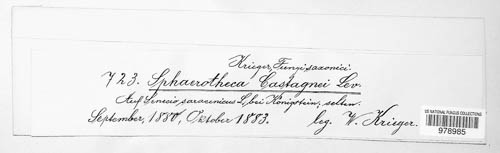 Krieger, Fungi saxonici.
723. Sphaerotheca Castagnei Lev.
Auf Senecio saracenicus L, bei Königstein, selten.
September, 1880, Oktober 1883. leg. W. Krieger.
US NATIONAL FUNGUS COLLECTIONS
978985